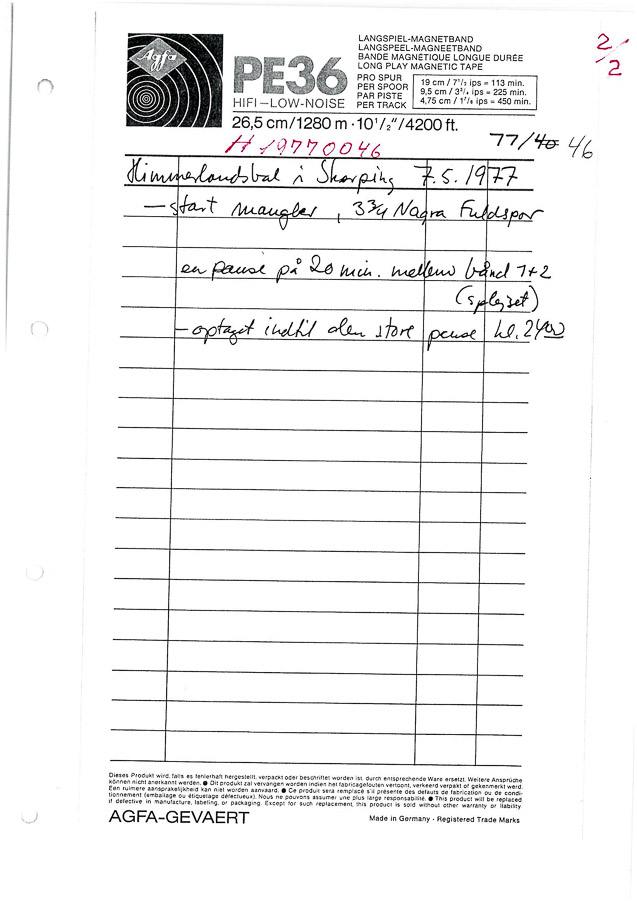 Agfa
PE36
HIFI–LOW–NOISE
LANGSPIEL-MAGNETBAND
LANGSPEEL-MAGNEETBAND
BANDE MAGNÉTIQUE LONGUE DURÉE
LONG PLAY MAGNETIC TAPE
PRO SPUR
PER SPOOR
PAR PISTE
PER TRACK
19 cm / 7 1/2 ips = 113 min.
9,5 cm / 3 3/4 ips = 225 min.
4,75 cm / 1 7/8 ips = 450 min.
2/2
26,5 cm/1280 m · 10 1/2"/4200 ft.
H 19770046
77/40 46
Himmerlandsbal i Skørping 7.5.1977
– start mangler, 3 3/4 Nagra Fuldspor
en pause på 20 min. mellem bånd 1+2
(splejset)
– optaget indtil den store pause kl. 2400
Dieses Produkt wird, falls es fehlerhaft hergestellt, verpackt oder beschriftet worden ist, durch entsprechende Ware ersetzt. Weitere Ansprüche
können nicht anerkannt werden. ● Dit produkt zal vervangen worden indien het fabricagefouten vertoont, verkeerd verpakt of gekenmerkt werd.
Een ruimere aansprakelijkheid kan niet worden aanvaard. ● Ce produit sera remplacé s'il présente des défauts de fabrication ou de condi-
tionnement (emballage ou étiquetage défectueux). Nous ne pouvons assumer une plus large responsabilité. ● This product will be replaced
if defective in manufacture, labeling, or packaging. Except for such replacement, this product is sold without other warranty or liability.
AGFA-GEVAERT
Made in Germany · Registered Trade Marks